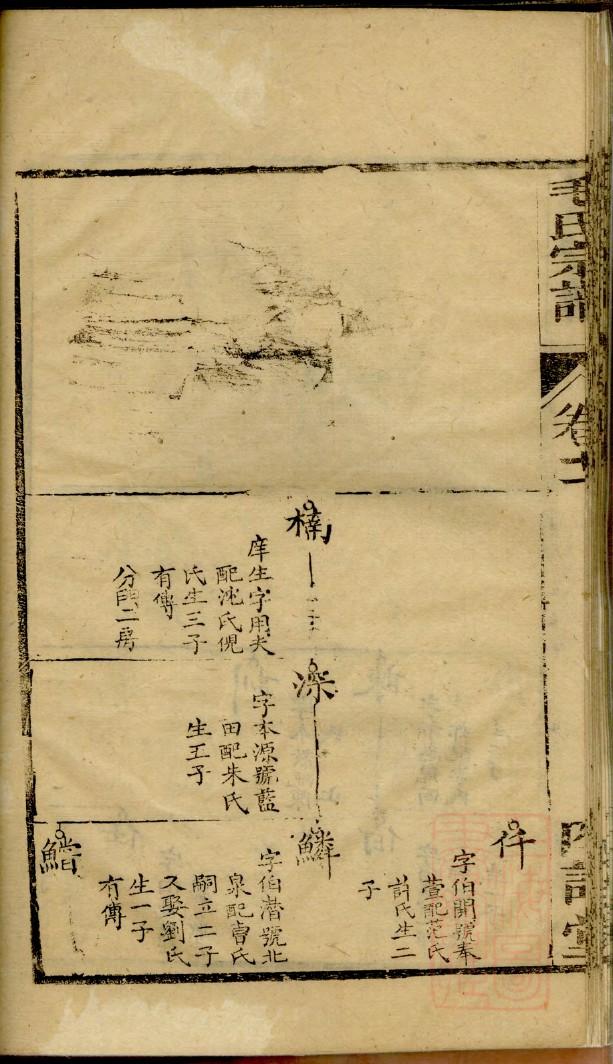 毛氏宗譜
卷十
楠
庠生字用夫
配沈氏倪
氏生三子
有傳
分四二房
深
字本源號藍
田配朱氏
生五子
仟
字伯開號奉
萱配范氏
許氏生二
子
鱗
字伯潛號北
泉配曹氏
嗣立二子
又娶劉氏
生一子
有傳